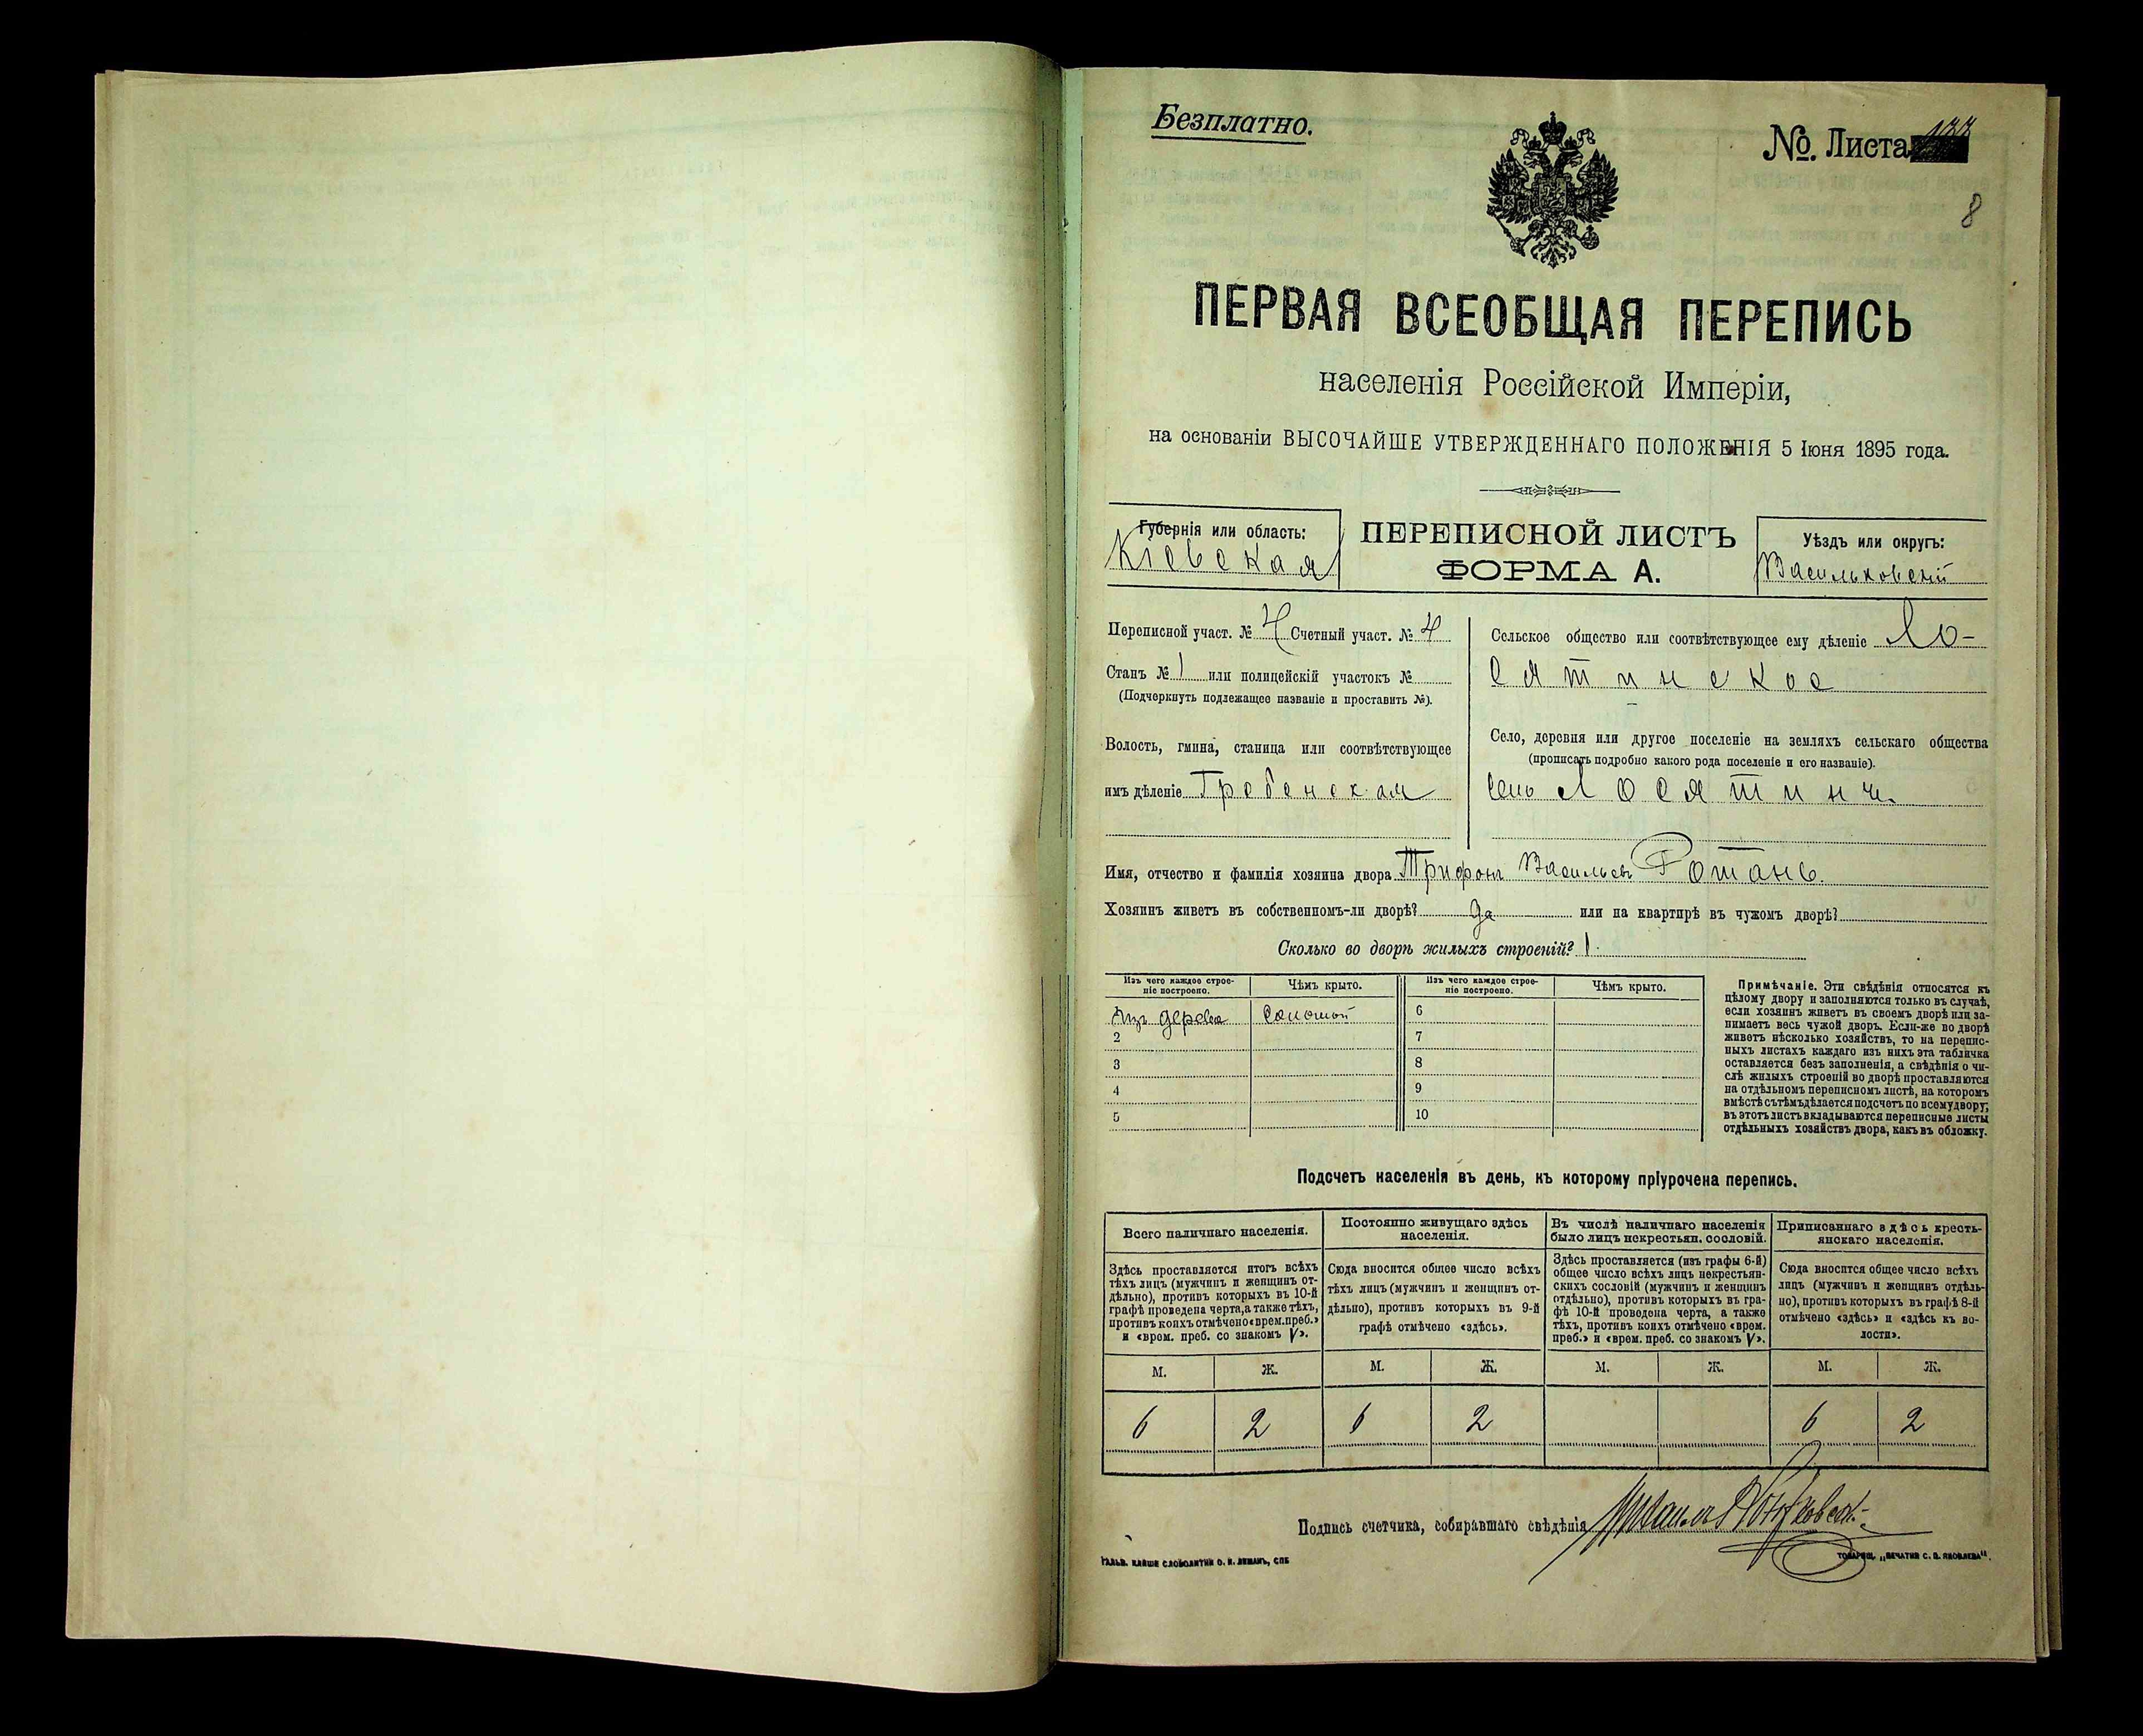 Безплатно.
№. Листа
8
ПЕРВАЯ ВСЕОБЩАЯ ПЕРЕПИСЬ
населенія Россійской Имперіи,
на основаніи ВЫСОЧАЙШЕ УТВЕРЖДЕННАГО ПОЛОЖЕНІЯ 5 Іюня 1895 года.
Губернія или область:
Кіевская
ПЕРЕПИСНОЙ ЛИСТЪ
ФОРМА А.
Уѣздъ или округъ:
Васильковскій
Переписной участ. № 4 Счетный участ. № 4
Станъ № 1 или полицейскій участокъ №
(Подчеркнуть подлежащее названіе и проставить №).
Волость, гмина, станица или соотвѣтствующее
имъ дѣленіе Гребенская
Сельское общество или соотвѣтствующее ему дѣленіе Ло-
сятинское
Село, деревня или другое поселеніе на земляхъ сельскаго общества
(прописать подробно какого рода поселеніе и его названіе).
село Лосятинъ
Имя, отчество и фамилія хозяина двора Трифонъ Васильевъ Ротань
Хозяинъ живетъ въ собственномъ-ли дворѣ? да или на квартирѣ въ чужомъ дворѣ?
Сколько во дворѣ жилыхъ строеній? 1
Изъ чего каждое строе-
ніе построено.
Чѣмъ крыто.
Изъ чего каждое строе-
ніе построено.
Чѣмъ крыто.
Изъ дерева соломой 6
2 7
3 8
4 9
5 10
Примѣчаніе. Эти свѣдѣнія относятся къ
цѣлому двору и заполняются только въ случаѣ,
если хозяинъ живетъ въ своемъ дворѣ или за-
нимаетъ весь чужой дворъ. Если-же во дворѣ
живетъ нѣсколько хозяйствъ, то на перепис-
ныхъ листахъ каждаго изъ нихъ эта табличка
оставляется безъ заполненія, а свѣдѣнія о чи-
слѣ жилыхъ строеній во дворѣ проставляются
на отдѣльномъ переписномъ листѣ, на которомъ
вмѣстѣ съ тѣмъ дѣлается подсчетъ по всему двору;
въ этотъ листъ вкладываются переписные листы
отдѣльныхъ хозяйствъ двора, какъ въ обложку.
Подсчетъ населенія въ день, къ которому пріурочена перепись.
Всего наличнаго населенія.
Здѣсь проставляется итогъ всѣхъ
тѣхъ лицъ (мужчинъ и женщинъ от-
дѣльно), противъ которыхъ въ 10-й
графѣ проведена черта, а также тѣхъ,
противъ коихъ отмѣчено «врем. преб.»
и «врем. преб. со знакомъ V».
Постоянно живущаго здѣсь
населенія.
Сюда вносится общее число всѣхъ
тѣхъ лицъ (мужчинъ и женщинъ от-
дѣльно), противъ которыхъ въ 9-й
графѣ отмѣчено «здѣсь».
Въ числѣ наличнаго населенія
было лицъ некрестьян. сословій.
Здѣсь проставляется (изъ графы 6-й)
общее число всѣхъ лицъ некрестьян-
скихъ сословій (мужчинъ и женщинъ
отдѣльно), противъ которыхъ въ гра-
фѣ 10-й проведена черта, а также
тѣхъ, противъ коихъ отмѣчено «врем.
преб.» и «врем. преб. со знакомъ V».
Приписаннаго здѣсь кресть-
янскаго населенія.
Сюда вносится общее число всѣхъ
лицъ (мужчинъ и женщинъ отдѣль-
но), противъ которыхъ въ графѣ 8-й
отмѣчено «здѣсь» и «здѣсь къ во-
лости».
М. Ж. М. Ж. М. Ж. М. Ж.
6 2 6 2 6 2
Подпись счетчика, собиравшаго свѣдѣнія
ТОВАРИЩ. „ПЕЧАТНЯ С. П. ЯКОВЛЕВА“.